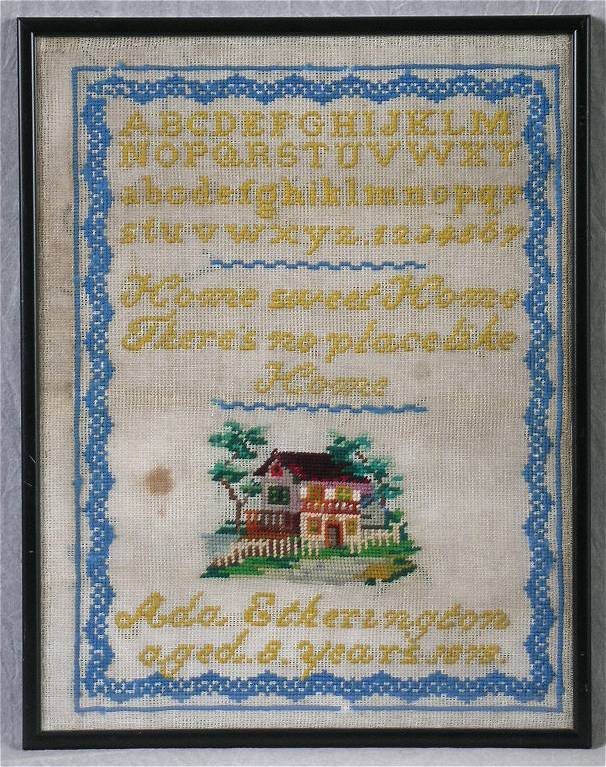 ABCDEFGHIJKLM
NOPQRSTUVWXY
abcdefghiklmnopqr
stuvwxyz.1234567
Home sweet Home
There's no place like
Home
Ada Etherington
aged. 8. years.